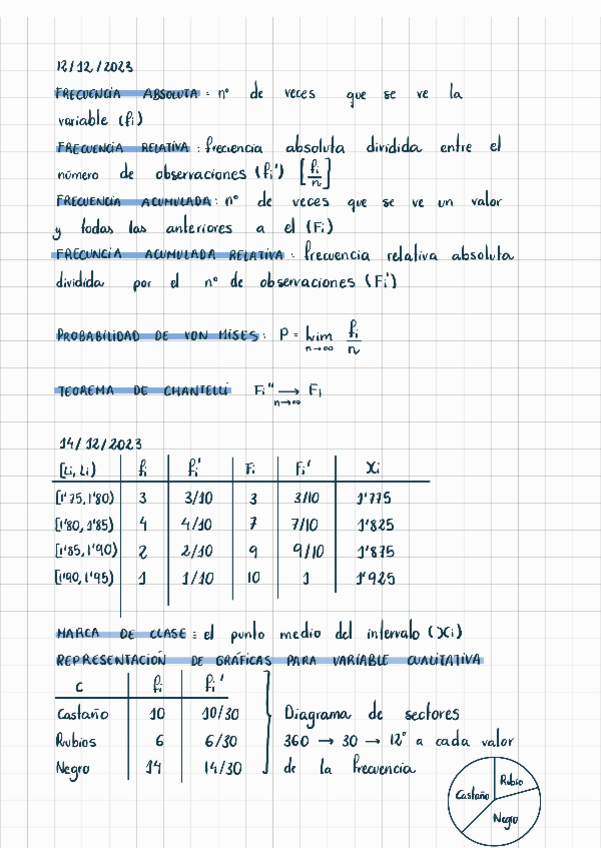 12/12/2023
FRECUENCIA ABSOLUTA : nº de veces que se ve la
variable (fi)
FRECUENCIA RELATIVA : frecuencia absoluta dividida entre el
número de observaciones (fi') [fi/n]
FRECUENCIA ACUMULADA : nº de veces que se ve un valor
y todas las anteriores a el (Fi)
FRECUNCIA ACUMULADA RELATIVA : frecuencia relativa absoluta
dividida por el nº de observaciones (Fi')
PROBABILIDAD DE VON MISES : P = lim n→∞ fi/n
TEOREMA DE CHANTELLI Fi" → n→∞ Fi
14/12/2023
[Li, Li) fi fi' Fi Fi' Xi
[1'75, 1'80) 3 3/10 3 3/10 1'775
[1'80, 1'85) 4 4/10 7 7/10 1'825
[1'85, 1'90) 2 2/10 9 9/10 1'875
[1'90, 1'95) 1 1/10 10 1 1'925
MARCA DE CLASE : el punto medio del intervalo (Xi)
REPRESENTACIÓN DE GRÁFICAS PARA VARIABLE CUALITATIVA
C fi fi'
Castaño 10 10/30 Diagrama de sectores
Rubios 6 6/30 360 → 30 → 12º a cada valor
Negro 14 14/30 de la frecuencia
Castaño Rubio
Negro